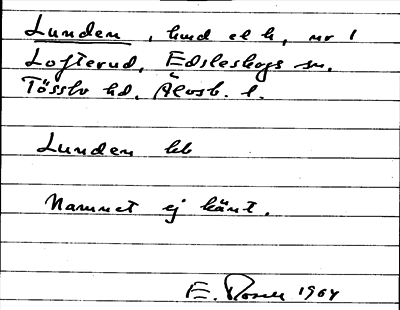 Lunden, hmd el h, nr 1
Lofterud, Edsleskogs sn.
Tössbo hd. Älvsb. l.
Lunden bb
Namnet ej känt.
E. Rosell 1964